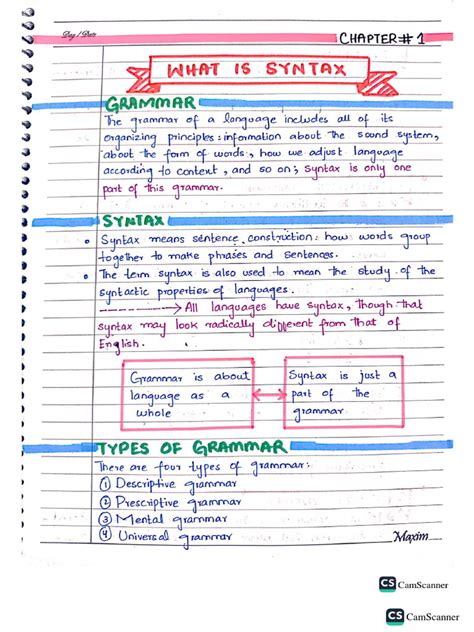 Day / Date
CHAPTER# 1
WHAT IS SYNTAX
GRAMMAR
The grammar of a language includes all of its
organizing principles: information about the sound system,
about the form of words, how we adjust language
according to context, and so on; syntax is only one
part of this grammar.
SYNTAX
• Syntax means sentence construction: how words group
together to make phrases and sentences.
• The term syntax is also used to mean the study of the
syntactic properties of languages.
→ All languages have syntax, though that
syntax may look radically different from that of
English.
Grammar is about
language as a
whole
Syntax is just a
part of the
grammar
TYPES OF GRAMMAR
There are four types of grammar:
① Descriptive grammar
② Prescriptive grammar
③ Mental grammar
④ Universal grammar
Maxim
CS CamScanner
CS CamScanner